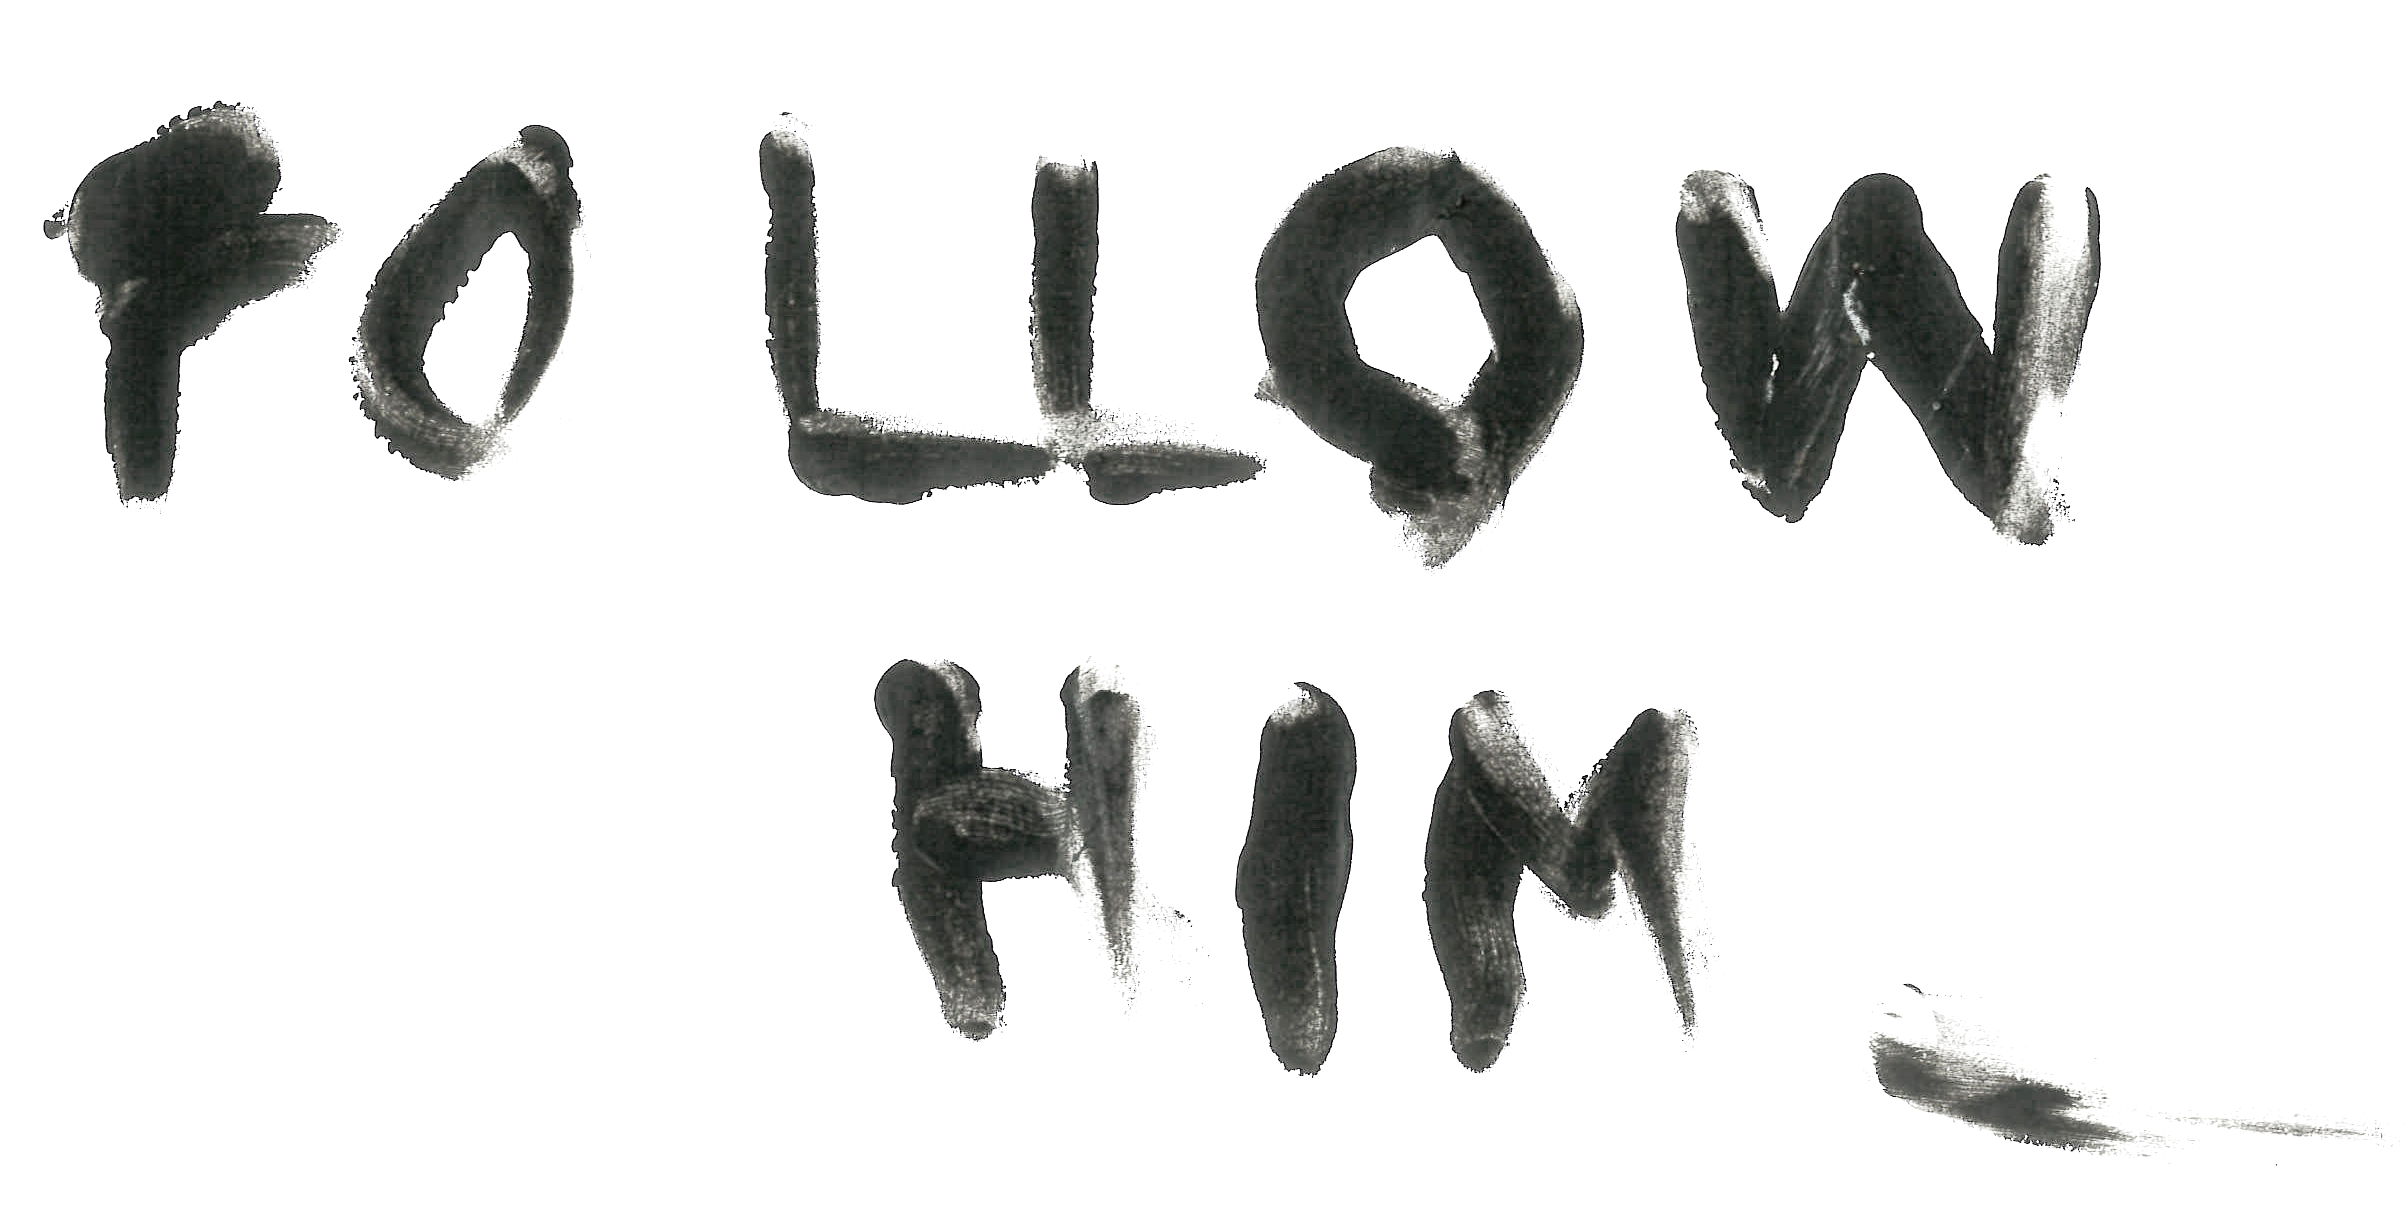 FOLLOW
HIM